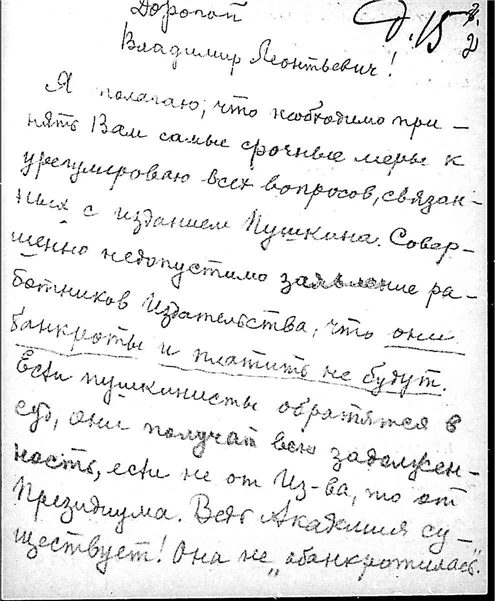 Дорогой
Владимир Леонтьевич!
Я полагаю, что необходимо при-
нять Вам самые срочные меры к
урегулироваю всех вопросов, связан-
ных с изданием Пушкина. Совер-
шенно недопустимо заявление ра-
ботников Издательства, что они
банкроты и платить не будут.
Если пушкинисты обратятся в
суд, они получат всю задолжен-
ность, если не от Из-ва, то от
Президиума. Ведь Академия су-
ществует! Она не „обанкротилась".